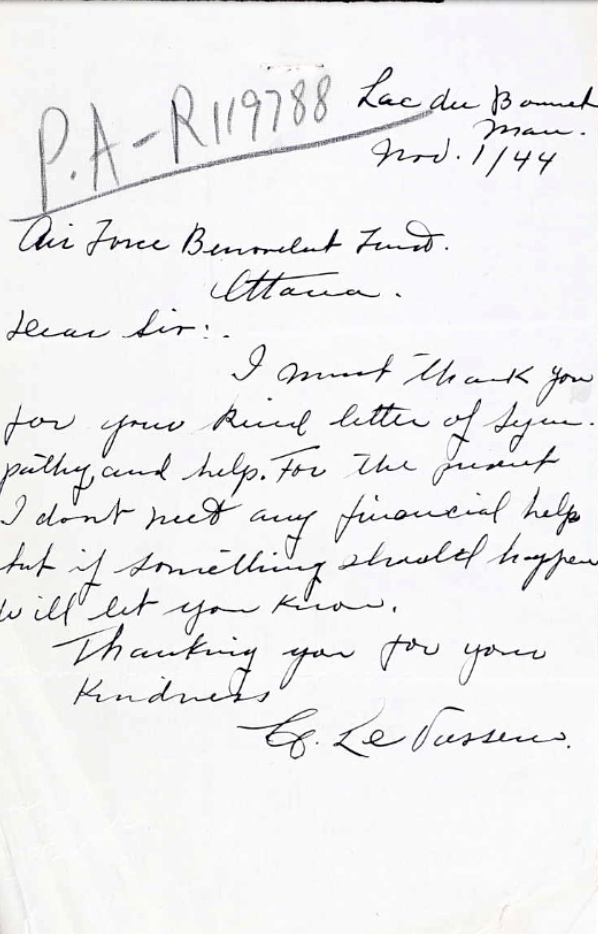 P.A-R119788
Lac du Bonnet
Man.
Nov. 1/44
Air Force Benevelent Fund.
Ottawa.
Dear Sir:.
I must thank you
for your kind letter of sym-
pathy, and help. For the present
I dont need any financial help
but if something should happen
will let you know.
Thanking you for your
kindness
Le Vasseur.